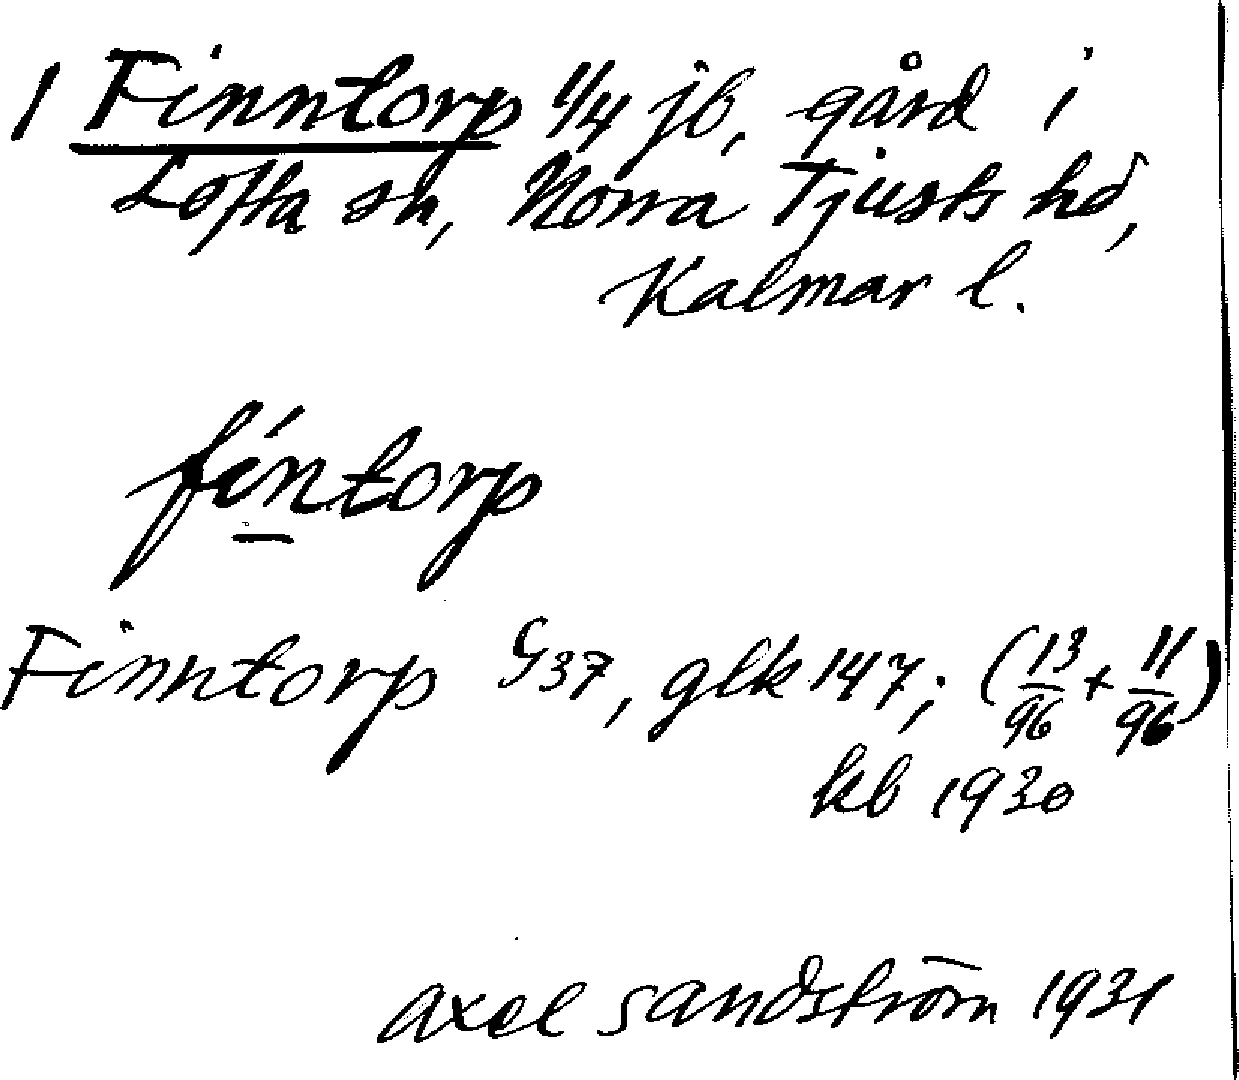 1 Finntorp 1/4 jb, gård i
Lofta sn, Norra Tjusts hd,
Kalmar l.
fíntorp
Finntorp G37, glk 147; (13/96 + 11/96)
kb 1930
Axel Sandström 1931